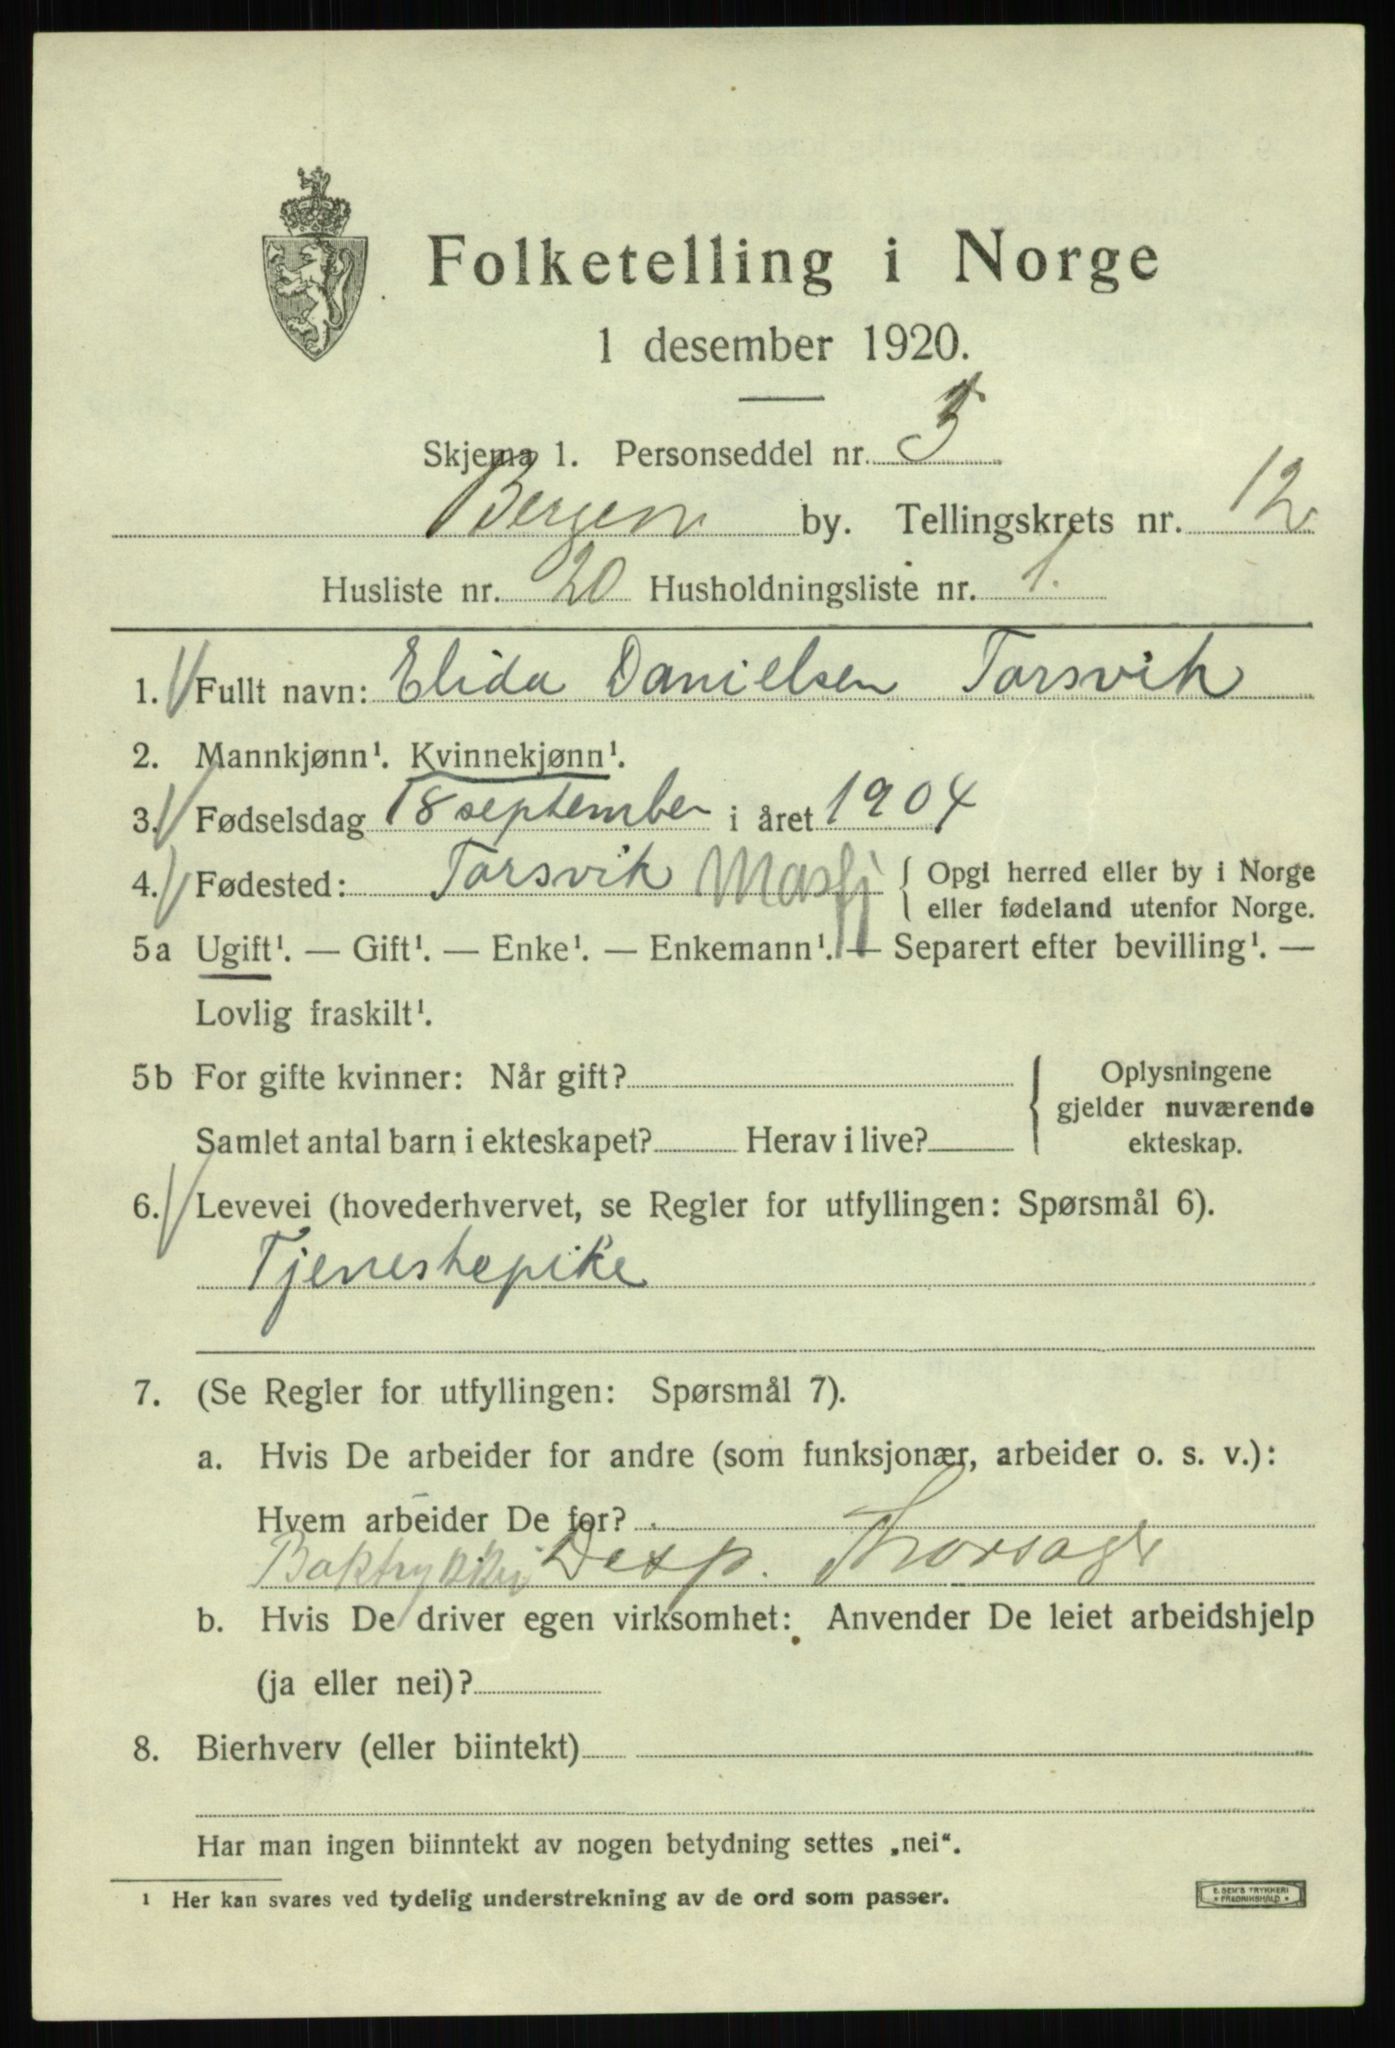 Folketelling i Norge
1 desember 1920.
Skjema 1. Personseddel nr. 3
Bergen by. Tellingskrets nr. 12
Husliste nr. 20 Husholdningsliste nr. 1.
1. Fullt navn: Elida Danielsen Torsvik
2. Mannkjønn¹. Kvinnekjønn¹.
3. Fødselsdag 18 september i året 1904
4. Fødested: Torsvik Masfj { Opgi herred eller by i Norge
eller fødeland utenfor Norge.
5a Ugift¹. — Gift¹. — Enke¹. — Enkemann¹. — Separert efter bevilling¹. —
Lovlig fraskilt¹.
5b For gifte kvinner: Når gift? { Oplysningene
gjelder nuværende
Samlet antal barn i ekteskapet? Herav i live? ekteskap.
6. Levevei (hovederhvervet, se Regler for utfyllingen: Spørsmål 6).
Tjenestepike
7. (Se Regler for utfyllingen: Spørsmål 7).
a. Hvis De arbeider for andre (som funksjonær, arbeider o. s. v.):
Hvem arbeider De for?
Desp.
b. Hvis De driver egen virksomhet: Anvender De leiet arbeidshjelp
(ja eller nei)?
8. Bierhverv (eller biintekt)
Har man ingen biinntekt av nogen betydning settes „nei“.
¹ Her kan svares ved tydelig understrekning av de ord som passer.
E. SEM'S TRYKKERI
FREDRIKSHALD